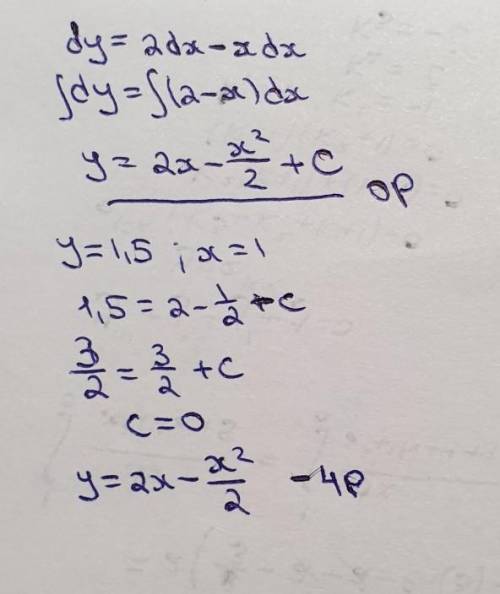 dy = 2dx - xdx
∫dy = ∫(2-x)dx
y = 2x - x²/2 + C
ОР
y = 1,5 ; x = 1
1,5 = 2 - 1/2 + C
3/2 = 3/2 + C
C = 0
y = 2x - x²/2 - ЧР